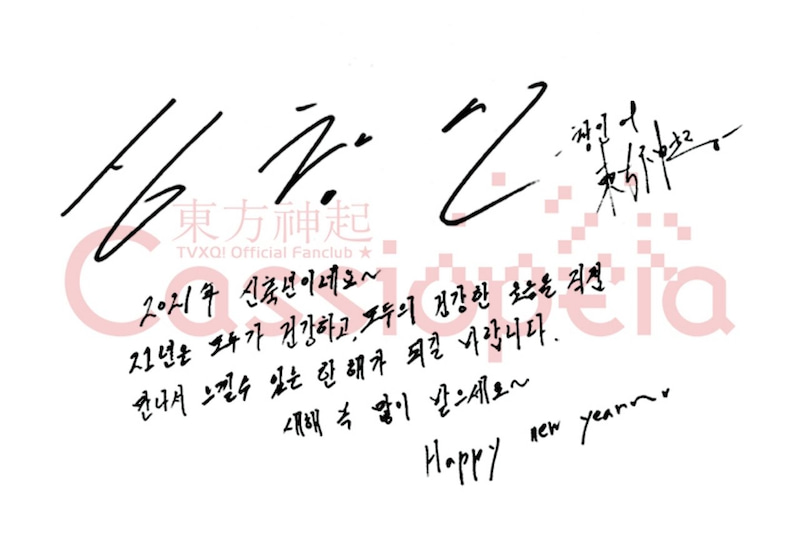 심창민
창민이
東方神起
東方神起
TVXQ! Official Fanclub ★
Cassiopeia
2021年 신축년이네요~
21년은 모두가 건강하고, 모두의 건강한 모습을 직접
만나서 느낄수 있는 한 해가 되길 바랍니다.
새해 복 많이 받으세요~
Happy new year~